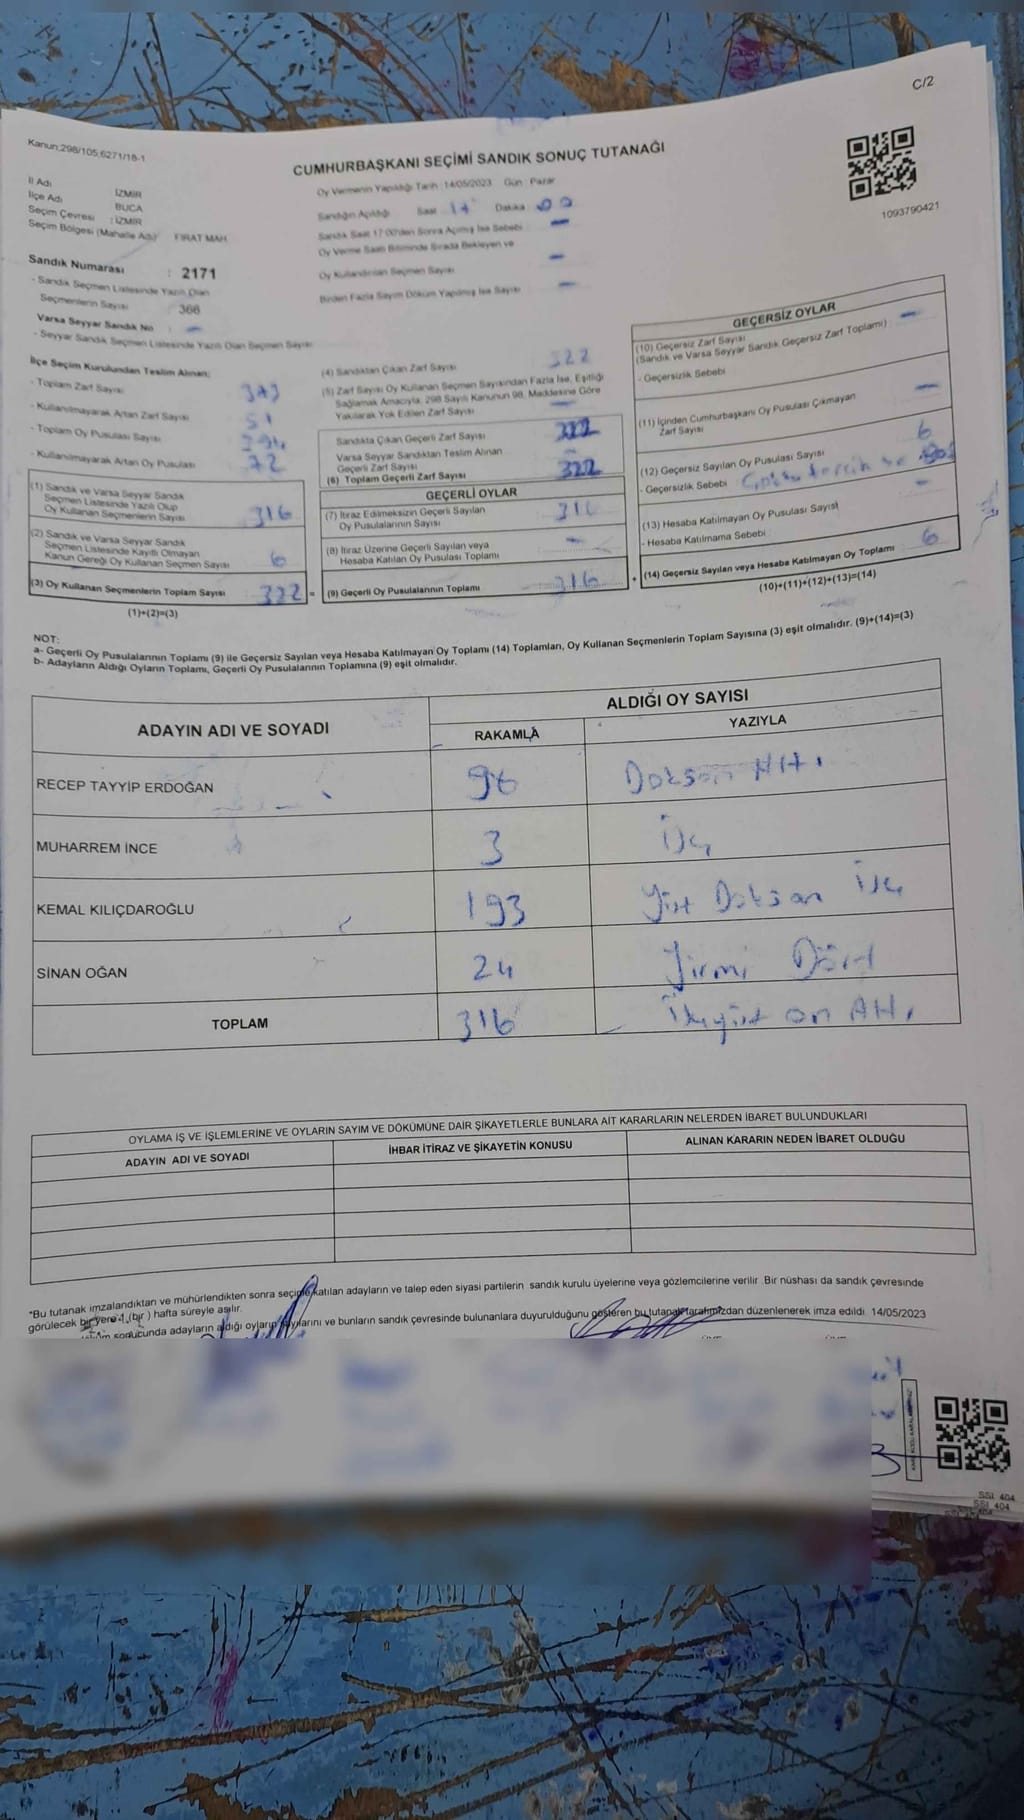 C/2
Kanun:298/105,6271/18-1
CUMHURBAŞKANI SEÇİMİ SANDIK SONUÇ TUTANAĞI
1093790421
İl Adı İZMİR
İlçe Adı BUCA
Seçim Çevresi : İZMİR
Seçim Bölgesi (Mahalle Adı) FIRAT MAH.
Oy Vermenin Yapıldığı Tarih : 14/05/2023 Gün : Pazar
Sandığın Açıldığı Saat 14 Dakika 00
Sandık Saat 17:00'den Sonra Açılmış İse Sebebi -
Oy Verme Saati Bitiminde Sırada Bekleyen ve
Oy Kullandırılan Seçmen Sayısı -
Birden Fazla Sayım Döküm Yapılmış İse Sayısı -
Sandık Numarası : 2171
- Sandık Seçmen Listesinde Yazılı Olan
Seçmenlerin Sayısı : 366
Varsa Seyyar Sandık No : -
- Seyyar Sandık Seçmen Listesinde Yazılı Olan Seçmen Sayısı
İlçe Seçim Kurulundan Teslim Alınan:
- Toplam Zarf Sayısı
- Kullanılmayarak Artan Zarf Sayısı 51
- Toplam Oy Pusulası Sayısı
- Kullanılmayarak Artan Oy Pusulası 72
(1) Sandık ve Varsa Seyyar Sandık
Seçmen Listesinde Yazılı Olup
Oy Kullanan Seçmenlerin Sayısı 316
(2) Sandık ve Varsa Seyyar Sandık
Seçmen Listesinde Kayıtlı Olmayan
Kanun Gereği Oy Kullanan Seçmen Sayısı 6
(3) Oy Kullanan Seçmenlerin Toplam Sayısı 322 =
(1)+(2)=(3)
(4) Sandıktan Çıkan Zarf Sayısı 322
(5) Zarf Sayısı Oy Kullanan Seçmen Sayısından Fazla İse, Eşitliği
Sağlamak Amacıyla; 298 Sayılı Kanunun 98. Maddesine Göre
Yakılarak Yok Edilen Zarf Sayısı -
Sandıkta Çıkan Geçerli Zarf Sayısı 322
Varsa Seyyar Sandıktan Teslim Alınan
Geçerli Zarf Sayısı -
(6) Toplam Geçerli Zarf Sayısı 322
GEÇERLİ OYLAR
(7) İtiraz Edilmeksizin Geçerli Sayılan
Oy Pusulalarının Sayısı 316
(8) İtiraz Üzerine Geçerli Sayılan veya
Hesaba Katılan Oy Pusulası Toplamı -
(9) Geçerli Oy Pusulalarının Toplamı 316 +
GEÇERSİZ OYLAR
(10) Geçersiz Zarf Sayısı -
(Sandık ve Varsa Seyyar Sandık Geçersiz Zarf Toplamı)
- Geçersizlik Sebebi
(11) İçinden Cumhurbaşkanı Oy Pusulası Çıkmayan
Zarf Sayısı -
(12) Geçersiz Sayılan Oy Pusulası Sayısı 6
- Geçersizlik Sebebi
(13) Hesaba Katılmayan Oy Pusulası Sayısı -
- Hesaba Katılmama Sebebi
(14) Geçersiz Sayılan veya Hesaba Katılmayan Oy Toplamı 6
(10)+(11)+(12)+(13)=(14)
NOT:
a- Geçerli Oy Pusulalarının Toplamı (9) ile Geçersiz Sayılan veya Hesaba Katılmayan Oy Toplamı (14) Toplamları, Oy Kullanan Seçmenlerin Toplam Sayısına (3) eşit olmalıdır. (9)+(14)=(3)
b- Adayların Aldığı Oyların Toplamı, Geçerli Oy Pusulalarının Toplamına (9) eşit olmalıdır.
ADAYIN ADI VE SOYADI
ALDIĞI OY SAYISI
RAKAMLA YAZIYLA
RECEP TAYYİP ERDOĞAN 96 Doksan Altı
MUHARREM İNCE 3 üç
KEMAL KILIÇDAROĞLU 193 Yüz Doksan üç
SİNAN OĞAN 24 Yirmi Dört
TOPLAM 316 üçyüz on Altı
OYLAMA İŞ VE İŞLEMLERİNE VE OYLARIN SAYIM VE DÖKÜMÜNE DAİR ŞİKAYETLERLE BUNLARA AİT KARARLARIN NELERDEN İBARET BULUNDUKLARI
ADAYIN ADI VE SOYADI İHBAR İTİRAZ VE ŞİKAYETİN KONUSU ALINAN KARARIN NEDEN İBARET OLDUĞU
*Bu tutanak imzalandıktan ve mühürlendikten sonra seçime katılan adayların ve talep eden siyasi partilerin sandık kurulu üyelerine veya gözlemcilerine verilir. Bir nüshası da sandık çevresinde
görülecek bir yere 1 (bir) hafta süreyle asılır.
sonucunda adayların aldığı oyların sayılarını ve bunların sandık çevresinde bulunanlara duyurulduğunu gösteren bu tutanak tarafımızdan düzenlenerek imza edildi. 14/05/2023
SSI 404
SSI 404